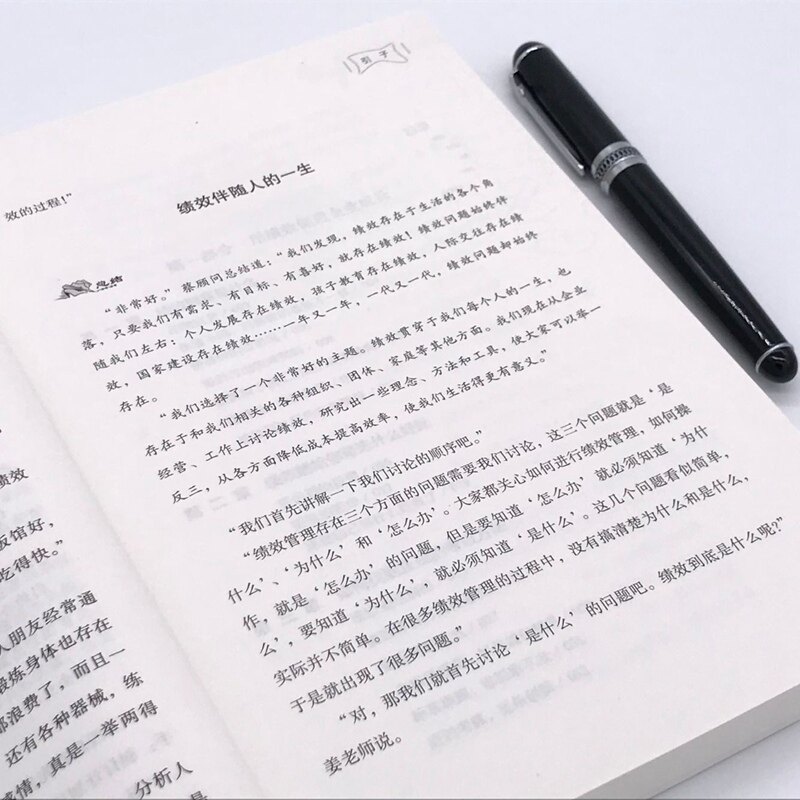 效的过程!”
绩效
饭馆好,
吃得快。”
人朋友经常通
锻炼身体也存在
都浪费了,而且一
还有各种器械,练
感情,真是一举两得
分析人
引子
绩效伴随人的一生
总结
“非常好。”蔡顾问总结道:“我们发现,绩效存在于生活的各个角
落,只要我们有需求、有目标、有喜好,就存在绩效!绩效问题始终伴
随我们左右:个人发展存在绩效,孩子教育存在绩效,人际交往存在绩
效,国家建设存在绩效……一年又一年,一代又一代,绩效问题却始终
存在。
“我们选择了一个非常好的主题。绩效贯穿于我们每个人的一生,也
存在于和我们相关的各种组织、团体、家庭等其他方面。我们现在从企业
经营、工作上讨论绩效,研究出一些理念、方法和工具,使大家可以举一
反三,从各方面降低成本提高效率,使我们生活得更有意义。”
“我们首先讲解一下我们讨论的顺序吧。”
“绩效管理存在三个方面的问题需要我们讨论,这三个问题就是‘是
什么’、‘为什么’和‘怎么办’。大家都关心如何进行绩效管理,如何操
作,就是‘怎么办’的问题,但是要知道‘怎么办’就必须知道‘为什
么’,要知道‘为什么’,就必须知道‘是什么’。这几个问题看似简单,
实际并不简单。在很多绩效管理的过程中,没有搞清楚为什么和是什么,
于是就出现了很多问题。”
“对,那我们就首先讨论‘是什么’的问题吧。绩效到底是什么呢?”
姜老师说。